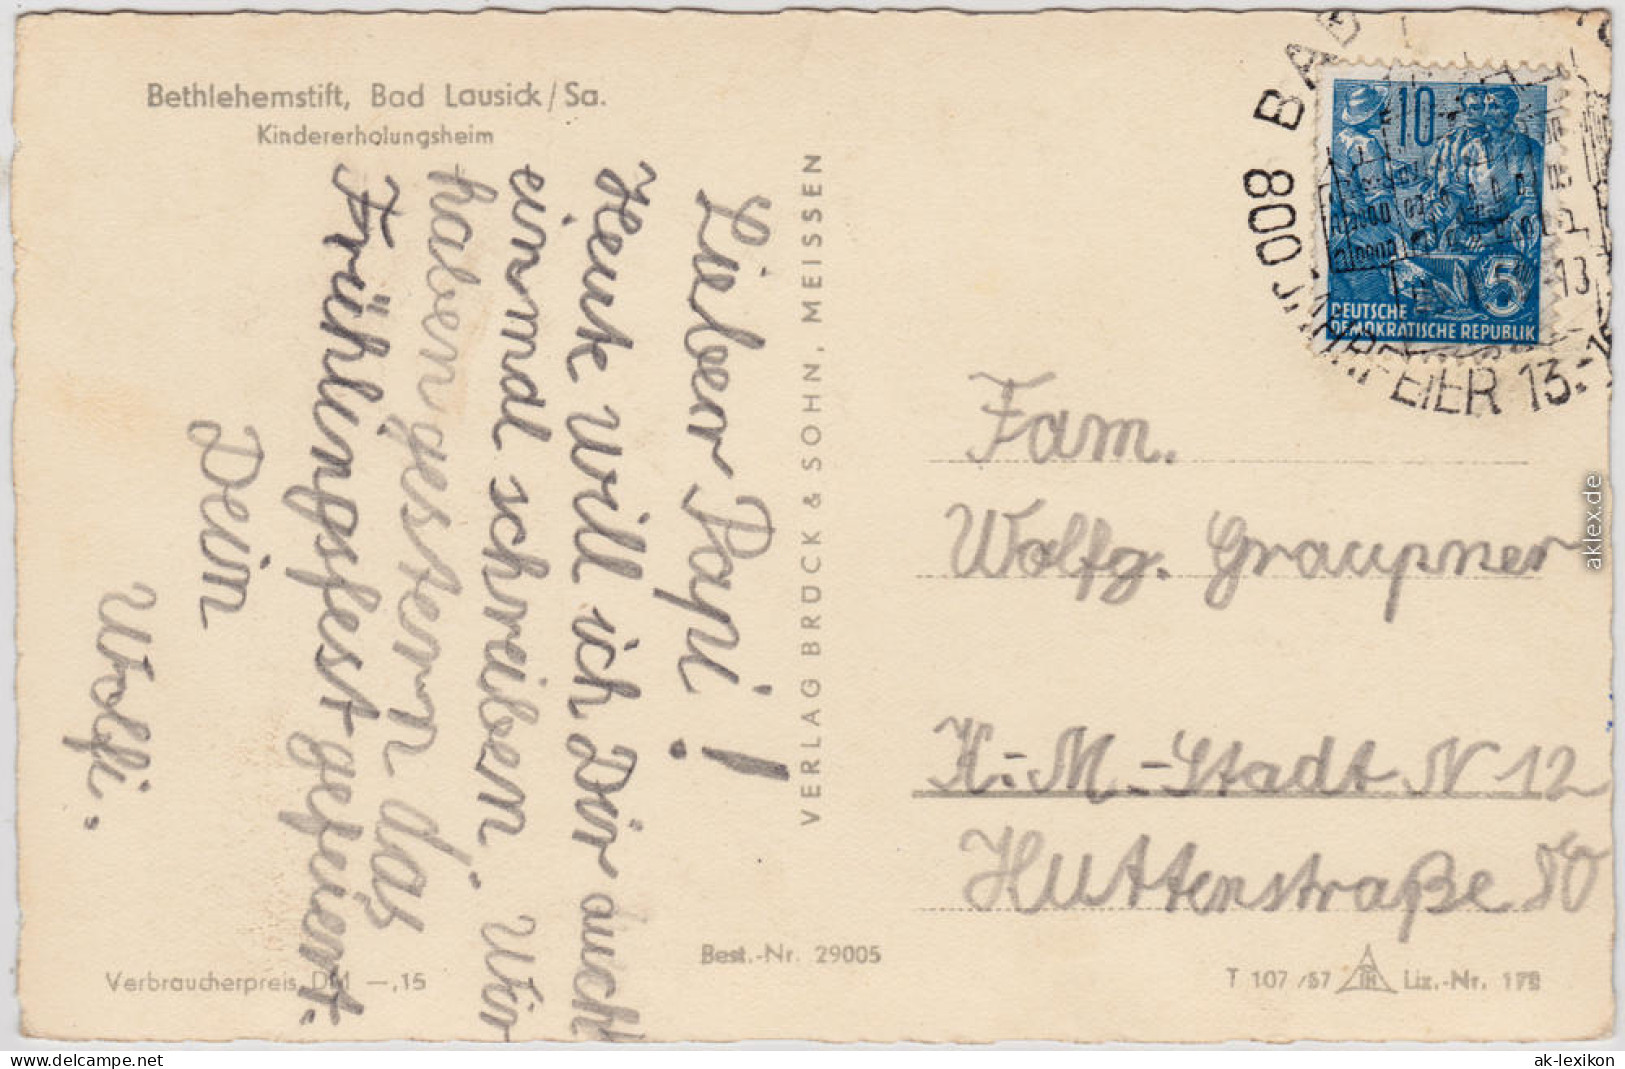 Bethlehemstift, Bad Lausick/Sa.
Kindererholungsheim
Lieber Papi!
Heute will ich Dir auch
einmal schreiben. Wir
haben gestern das
Frühlingsfest gefeiert.
Dein
Wolfi.
VERLAG BRÜCK & SOHN, MEISSEN
Verbraucherpreis DM —,15
Best.-Nr. 29005
800 BAD
FEIER 13.-
13
10
5
DEUTSCHE
DEMOKRATISCHE REPUBLIK
Fam.
Wolfg. Graupner
K.-M.-Stadt N 12
Huttenstraße 80
T 107/57 TH Liz.-Nr. 178
aklex.de
www.delcampe.net
ak-lexikon